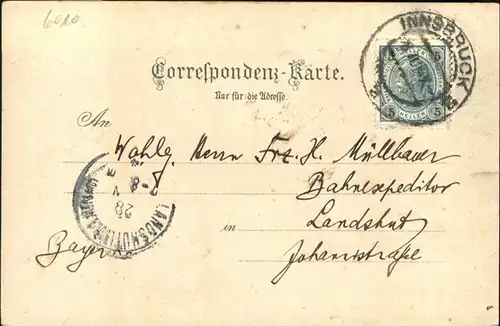 6020
INNSBRUCK
5 HELLER 5
Correspondenz-Karte.
Nur für die Adresse.
An
Wohlg. Herrn Frz. H. Müllbauer
Bahnexpeditor
LANDSHUT
28 V
in Landshut
Johannisstraße
Bayern